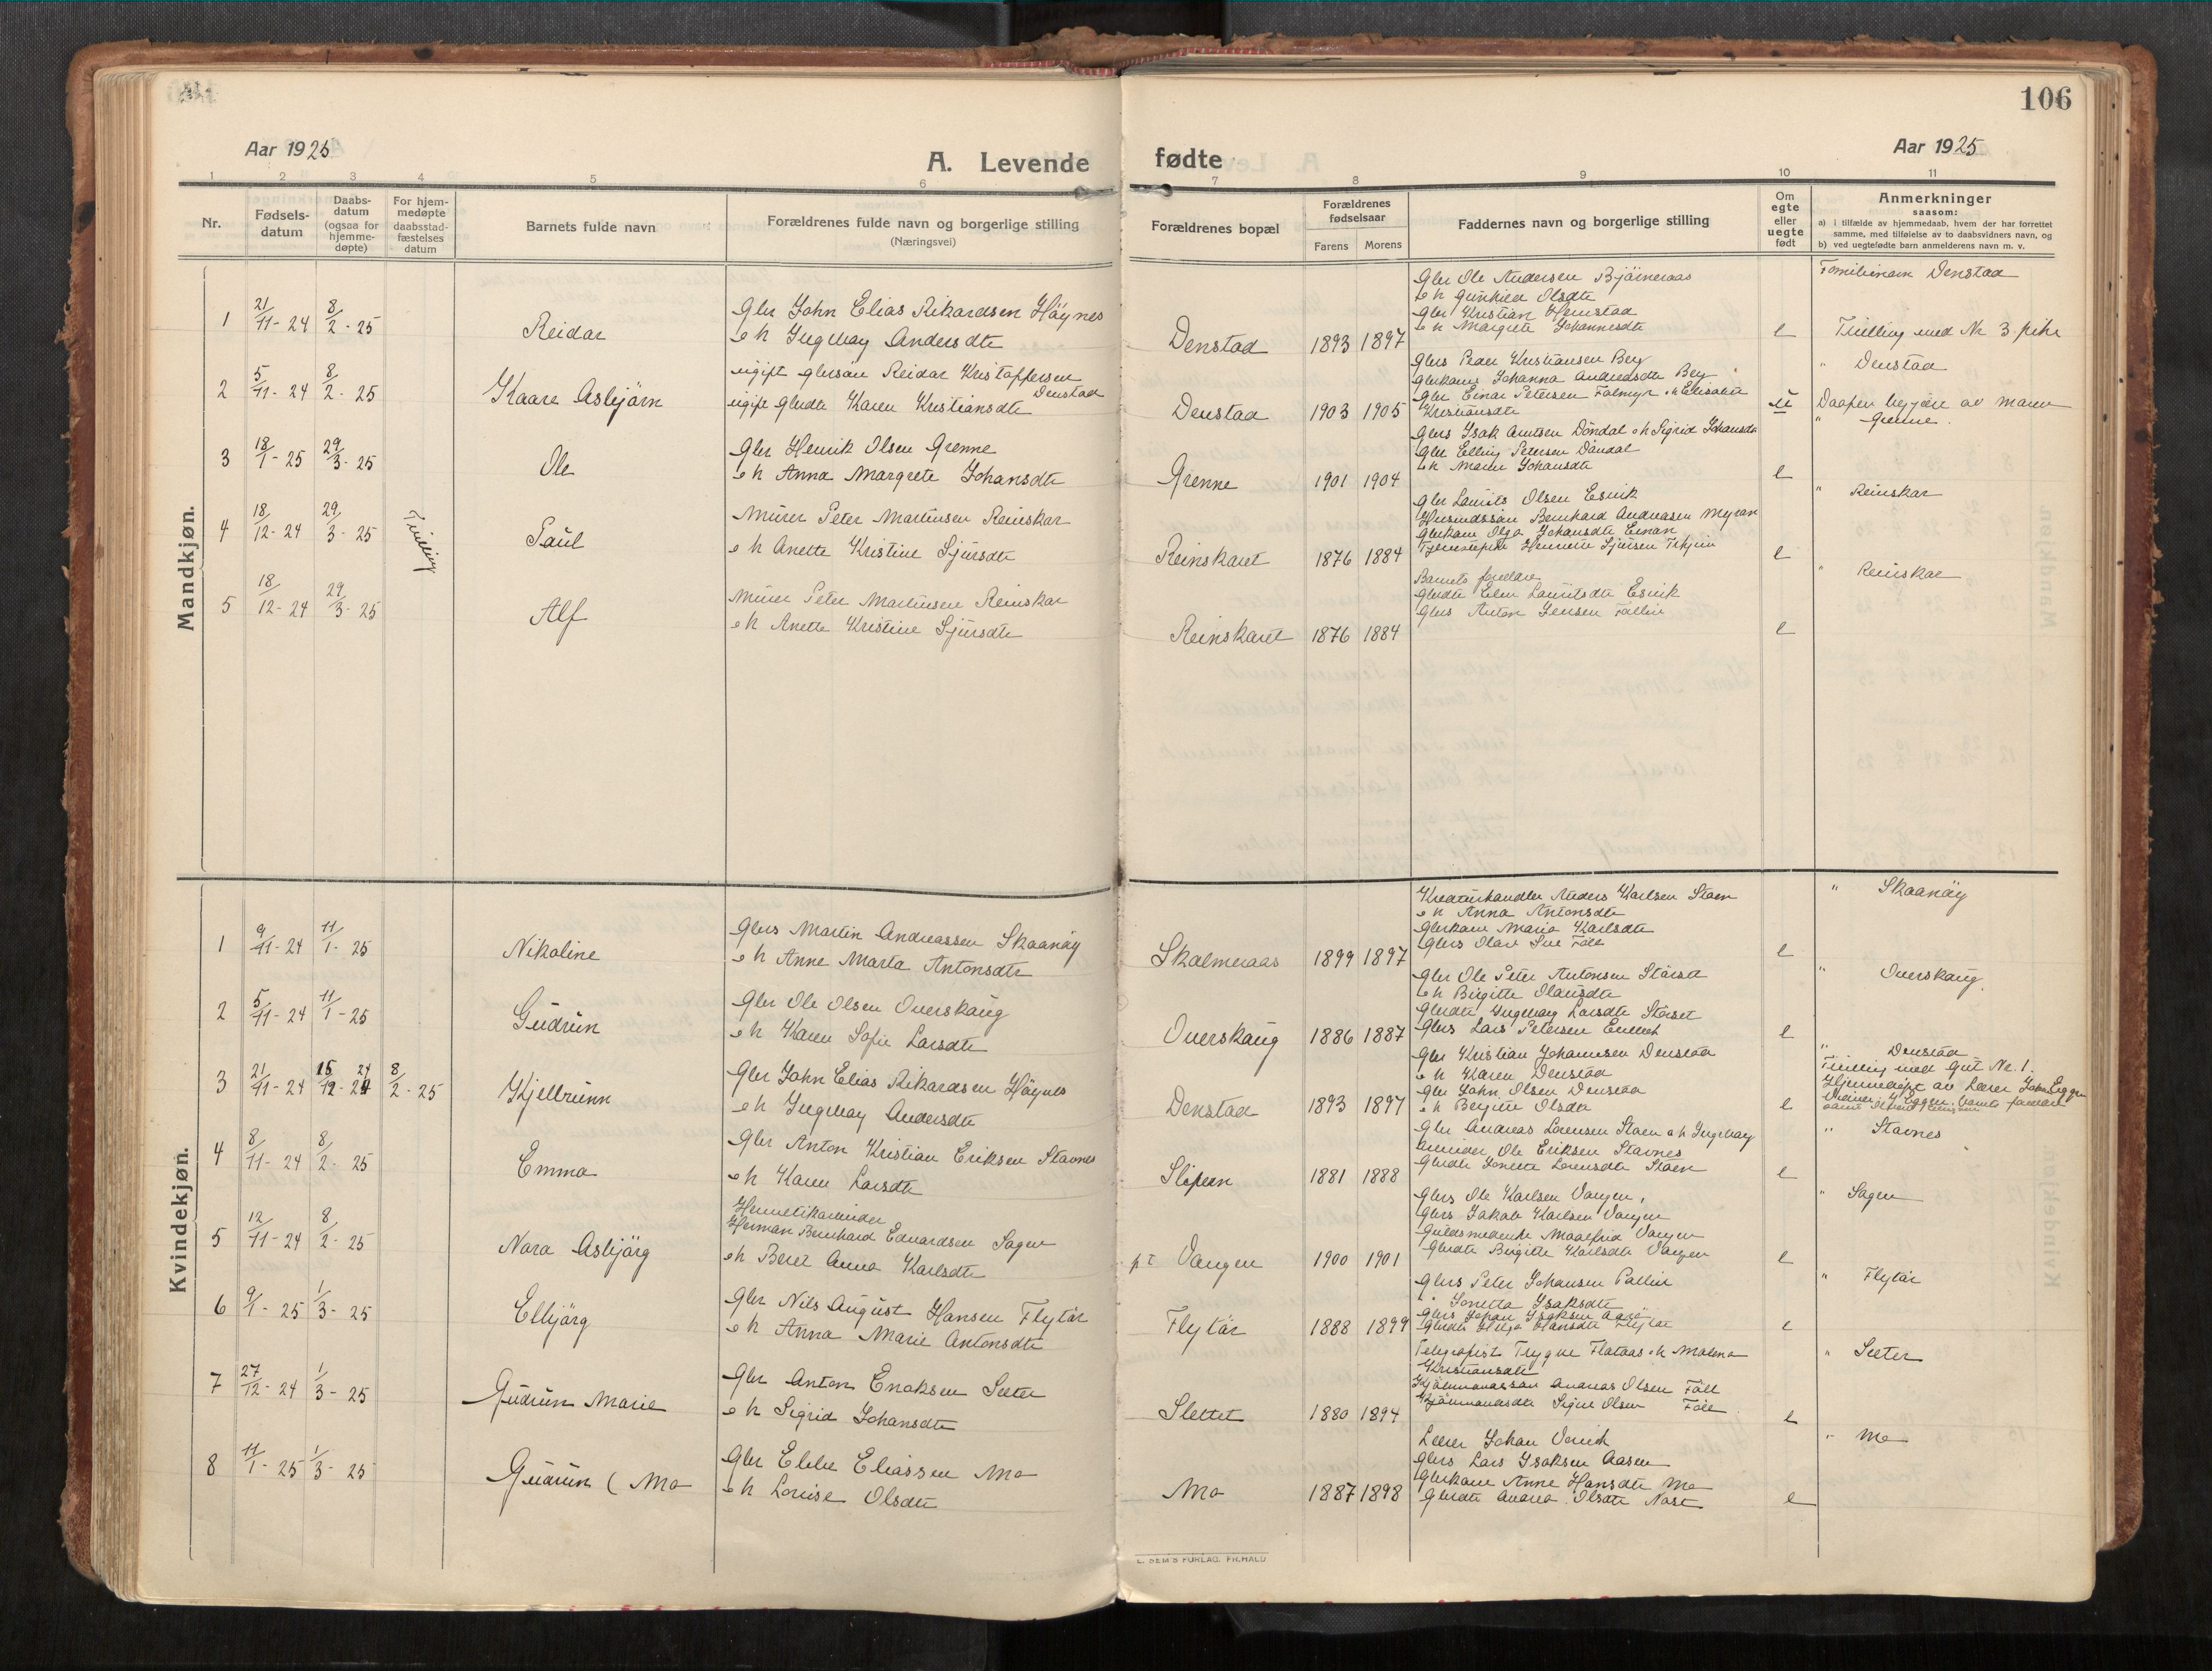 106
Aar 1925
A. Levende
fødte
Aar 1925
1 2 3 4 5 6 7 8 9 10 11
Nr.
Fødsels-
datum
Daabs-
datum
(ogsaa for
hjemme-
døpte)
For hjem-
medøpte
daabsstad-
fæstelses
datum
Barnets fulde navn
Forældrenes fulde navn og borgerlige stilling
(Næringsvei)
Forældrenes bopæl
Forældrenes
fødselsaar
Farens Morens
Faddernes navn og borgerlige stilling
Om
egte
eller
uegte
født
Anmerkninger
saasom:
a) i tilfælde av hjemmedaab, hvem der har forrettet
samme, med tilføielse av to daabsvidners navn, og
b) ved uegtefødte barn anmelderens navn m. v.
Mandkjøn.
1 21/11-24 8/2-25 Reidar
Gbr John Elias Rikardsen Höynes
e h Ingebay Andersdtr
Denstad 1893 1897
Gbr Ole Andersen Björneraas
e h Gunhild Olsdtr
Gbr Kristian Henstad
e h Margrete Johannesdtr
e
Familienavn Denstad
Tvilling med Nr 3 pike
2 5/11-24 8/2-25 Kaare Asbjörn
ugift gbrsön Reidar Kristoffersen
Denstad
ugift gbrdtr Karen Kristiansdtr
Denstad 1903 1905
Gbrs Peder Kristiansen Berg
Gbrkone Johanna Andreasdtr Berg
Gbr Einar Petersen Folmyr e h Elisabet
Kristiansdtr
u
" Denstad
Daapen begjært av moren
3 18/1-25 29/3-25 Ole
Gbr Henrik Olsen Grenne
e h Anna Margrete Johansdtr
Grenne 1901 1904
Gbrs Isak Arntsen Döndal e h Sigrid Johansdtr
Gbr Elling Petersen Döndal
e h Maren Johansdtr
e
" Grenne.
4 18/12-24 29/3-25 Tvilling Paul
Murer Peter Martinsen Reinskar
e h Anette Kristine Sjursdtr
Reinskaret 1876 1884
Gbr Laurits Olsen Esvik
Husmandssön Bernhard Andreasen Myran
Gbrkone Olga Johansdtr
Tjenestepike Henriette Sjursen
e
" Reinskar
5 18/12-24 29/3-25 Alf
Murer Peter Martinsen Reinskar
e h Anette Kristine Sjursdtr
Reinskaret 1876 1884
Barnets foreldre
Gbrdtr Elen Lauritsdtr Esvik
Gbrs Anton Jensen
e
" Reinskar
Kvindekjøn.
1 9/11-24 11/1-25 Nikoline
Gbrs Martin Andreassen Skaanöy
e h Anne Marta Antonsdtr
Skalmeraas 1899 1897
Kreaturhandler Anders Karlsen Stoen
e h Anna Antonsdtr
Gbrkone Maria Karlsdtr
Gbrs Olav
e
" Skaanöy
2 5/11-24 11/1-25 Gudrun
Gbr Ole Olsen Overskaug
e h Karen Sofie Larsdtr
Overskaug 1886 1887
Gbr Ole Peter Antonsen Störset
e h Birgitte Olausdtr
Gbrdtr Ingebay Larsdtr Störset
Gbrs Lars Petersen
e
" Overskaug.
3 21/11-24 15/12-24 8/2-25 Kjellrunn
Gbr John Elias Rikardsen Höynes
e h Ingebay Andersdtr
Denstad 1893 1897
Gbr Kristian Johannesen Denstad
e h Karen Denstad
Gbr John Olsen Denstad
e h Bergitte Olsdtr
e
" Denstad
Tvilling med gut Nr. 1.
Hjemmedöpt av Lærer
4 8/11-24 8/2-25 Emma
Gbr Anton Kristian Eriksen Stavnes
e h Karen Larsdtr
Slipern 1881 1888
Gbr Andreas Lorensen Stoen e h Ingebay
Ole Eriksen Stavnes
Gbrdtr Jonette Lorensdtr Stoen
e
" Stavnes
5 12/11-24 8/2-25 Nora Asbjörg
Hermetikarbeider
Herman Bernhard Edvardsen Sagen
e h Beret Anna Karlsdtr
pt Vangen 1900 1901
Gbrs Ole Karlsen Vangen,
Gbrs Jakob Karlsen Vangen
Maalfrid Vangen
Gbrdtr Birgitte Karlsdtr Vangen
e
" Sagen
6 9/1-25 1/3-25 Elbjörg
Gbr Nils August Hansen Flytör
e h Anna Marie Antonsdtr
Flytör 1888 1899
Gbrs Peter Johansen
" Jonetta Isaksdtr
Gbrs Johan Isaksen
Gbrdtr Helga Hansdtr Flytör
e
" Flytör
7 27/12-24 1/3-25 Gudrun Marie
Gbr Anton Enoksen Sæter
e h Sigrid Johansdtr
Slettet 1880 1894
Telegrafist Trygve Flataas e h Malena
Kristiansdtr
Andreas Olsen
Signe Olsen
e
" Sæter
8 11/1-25 1/3-25 Gudrun ( Mo
Gbr Ebbe Eliassen Mo
e h Louise Olsdtr
Mo 1887 1898
Lærer Johan
Gbrs Lars Isaksen Aasen
Gbrkone Anne Hansdtr Mo
Gbrdtr Olsdtr
e
" Mo
E. SEM'S FORLAG. FR.HALD